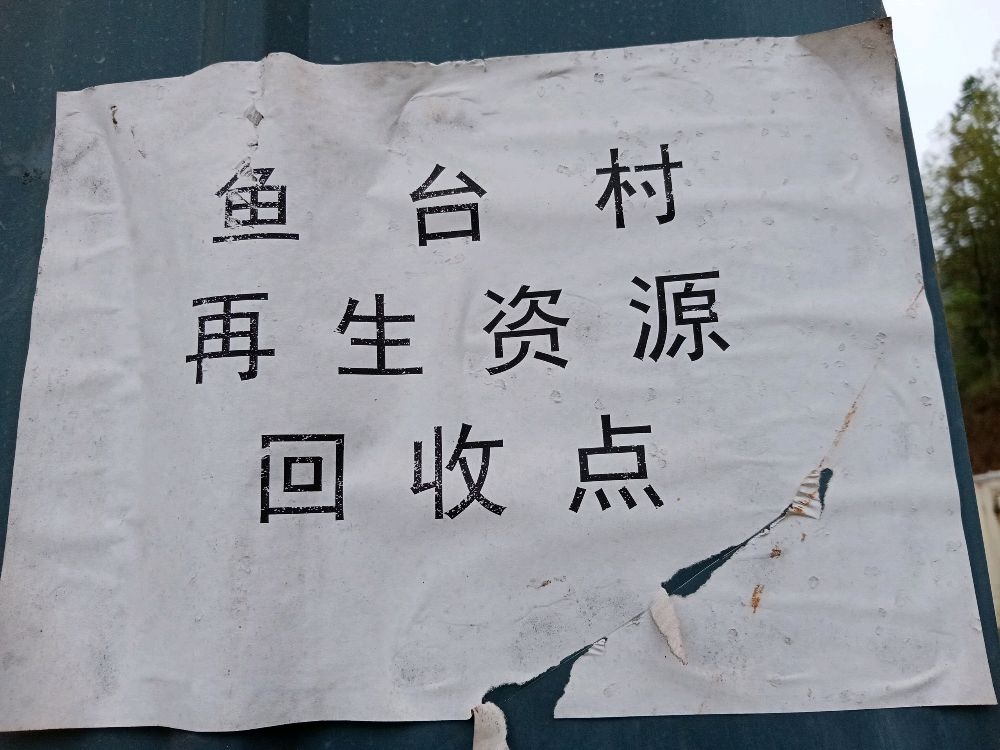 鱼台村
再生资源
回收点